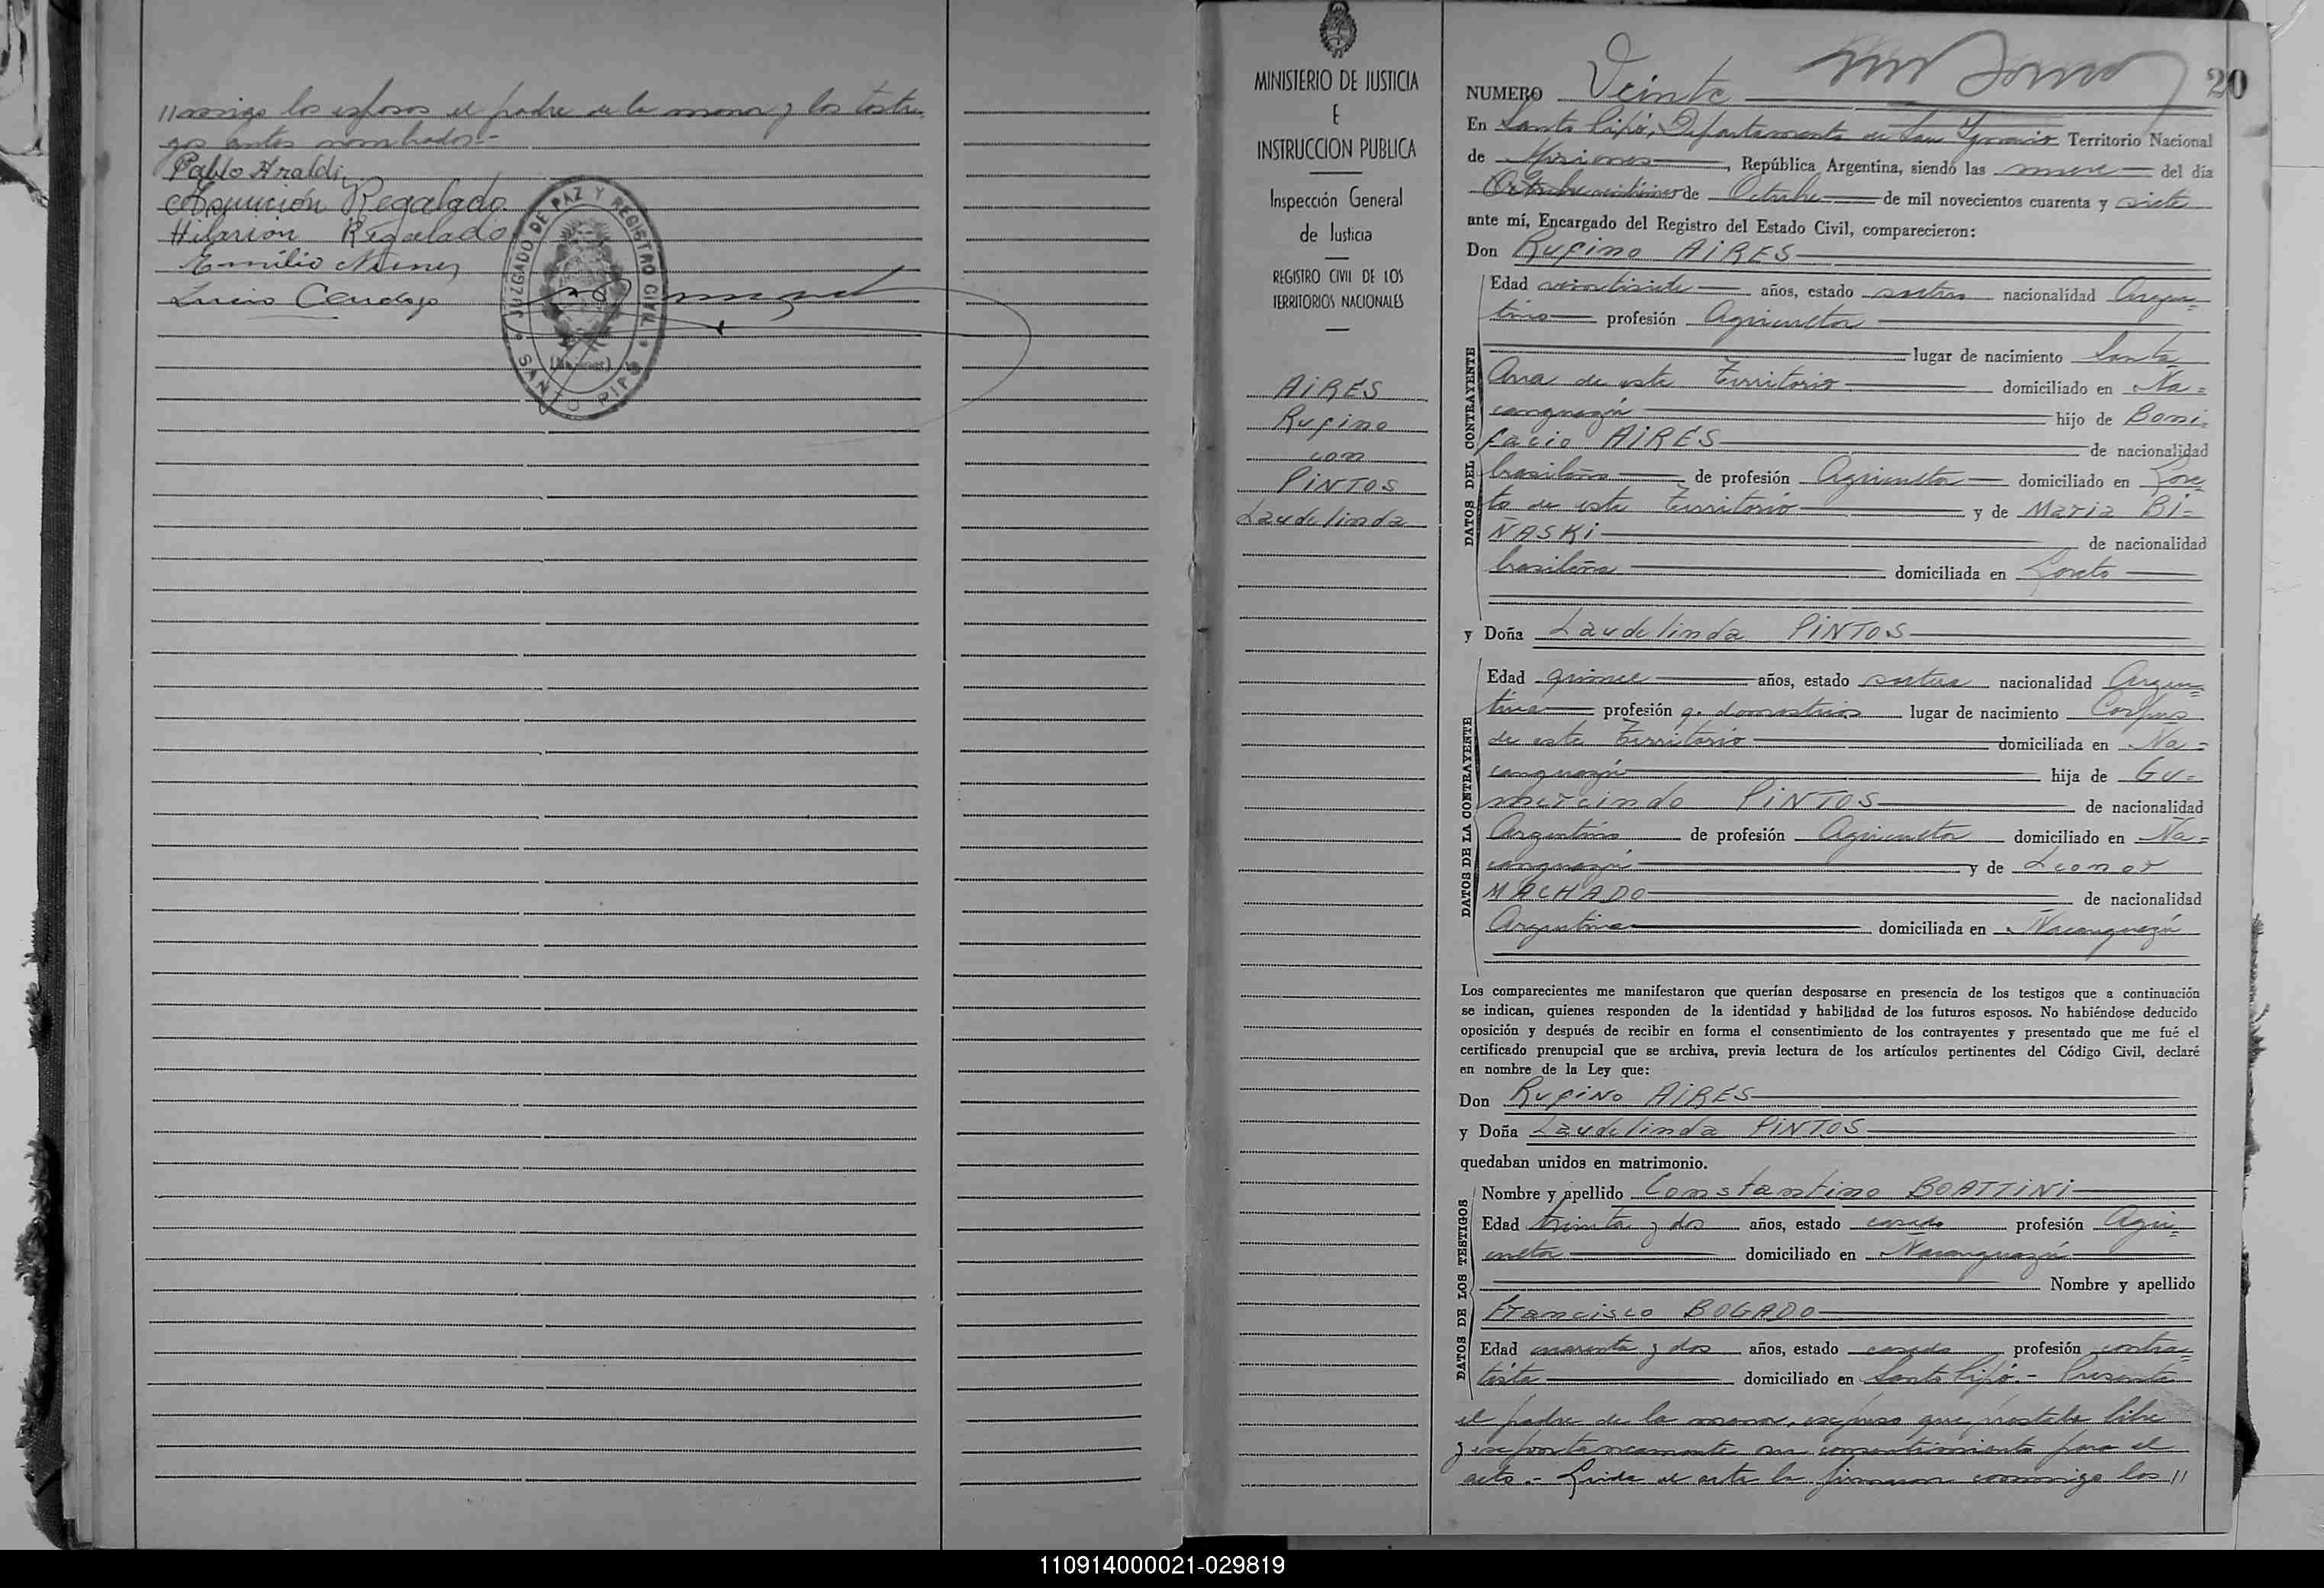 //migo los esposos el padre de la menor y los testi-
gos antes nombrados.-
Pablo Araldi
Asunción Regalado
Hilarión Regalado
Emilio Nunes
Lucio
JUZGADO DE PAZ Y REGISTRO CIVIL
(Misiones)
SANTO PIPÓ
MINISTERIO DE JUSTICIA
E
INSTRUCCION PUBLICA
Inspección General
de Justicia
REGISTRO CIVIL DE LOS
TERRITORIOS NACIONALES
AIRES
Rufino
con
PINTOS
Laudelinda
20
NUMERO Veinte
En Santo Pipó, Departamento de San Ignacio Territorio Nacional
de Misiones, República Argentina, siendo las nueve del día
de Octubre de mil novecientos cuarenta y siete
ante mí, Encargado del Registro del Estado Civil, comparecieron:
Don Rufino AIRES
DATOS DEL CONTRAYENTE
Edad veintisiete años, estado soltero nacionalidad Argen=
tino profesión Agricultor
lugar de nacimiento Santa
Ana de este Territorio domiciliado en Ña=
canguazú hijo de Boni=
facio AIRES de nacionalidad
brasileño de profesión Agricultor domiciliado en Lore=
to de este Territorio y de Maria BI=
ÑASKI de nacionalidad
brasileña domiciliada en Loreto
y Doña Laudelinda PINTOS
DATOS DE LA CONTRAYENTE
Edad quince años, estado soltera nacionalidad Argen=
tina profesión q. domésticos lugar de nacimiento Corpus
de este Territorio domiciliada en Ña=
canguazú hija de Gu=
mercindo PINTOS de nacionalidad
Argentino de profesión Agricultor domiciliado en Ña=
canguazú y de Leonor
MACHADO de nacionalidad
Argentina domiciliada en Ñacanguazú
Los comparecientes me manifestaron que querían desposarse en presencia de los testigos que a continuación
se indican, quienes responden de la identidad y habilidad de los futuros esposos. No habiéndose deducido
oposición y después de recibir en forma el consentimiento de los contrayentes y presentado que me fué el
certificado prenupcial que se archiva, previa lectura de los artículos pertinentes del Código Civil, declaré
en nombre de la Ley que:
Don Rufino AIRES
y Doña Laudelinda PINTOS
quedaban unidos en matrimonio.
DATOS DE LOS TESTIGOS
Nombre y apellido Constantino BOATTINI
Edad treinta y dos años, estado casado profesión Agri=
cultor domiciliado en Ñacanguazú
Nombre y apellido
Francisco BOGADO
Edad cuarenta y dos años, estado casado profesión contra=
tista domiciliado en Santo Pipó.- Presente
el padre de la menor, expuso que prestaba libre
y espontaneamente su consentimiento para el
acto.- Leida el acta la firmaron conmigo los //
110914000021-029819